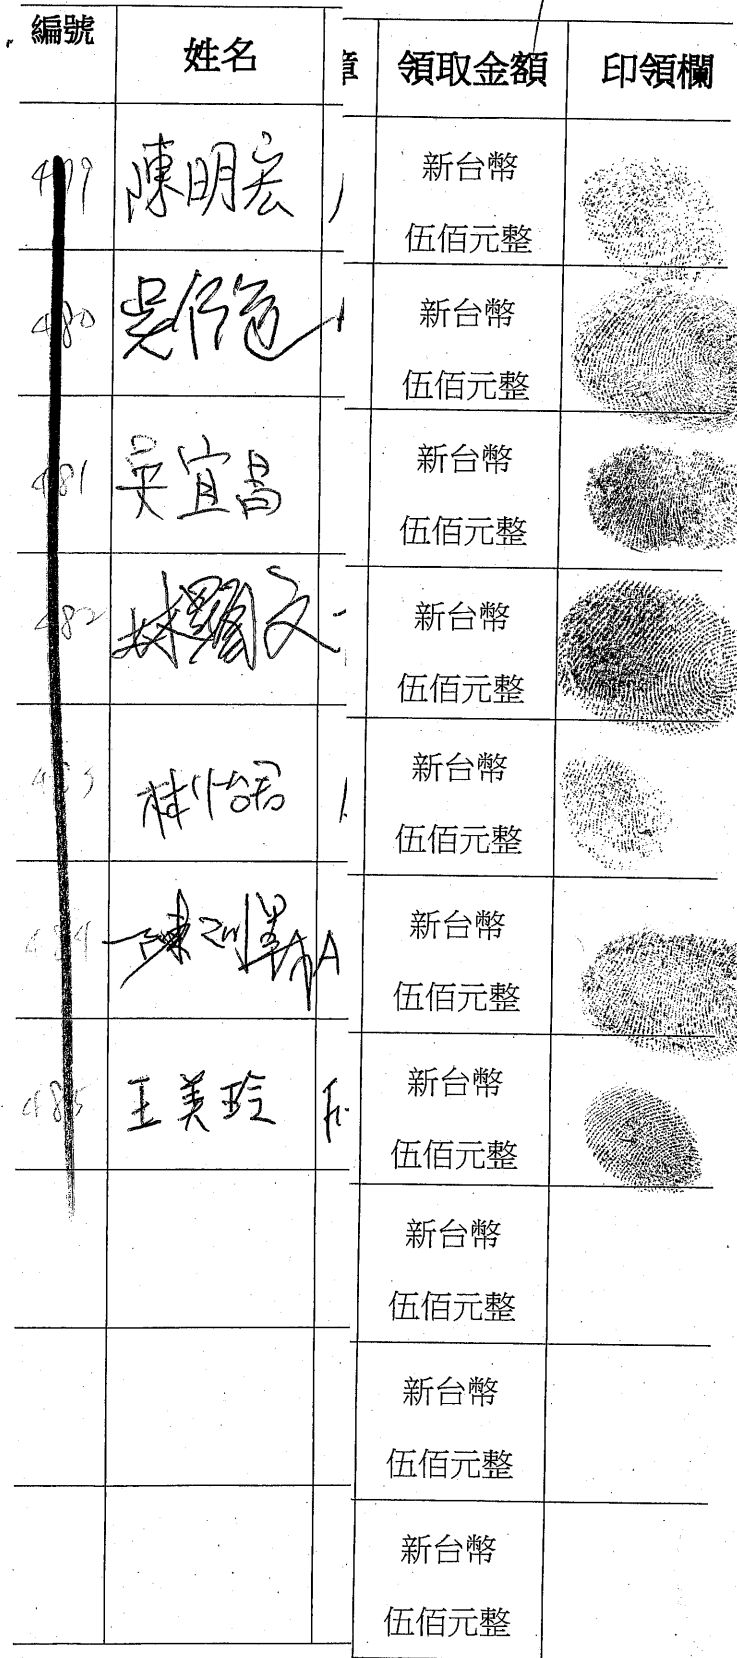 編號 姓名 章 領取金額 印領欄
479 陳明宏 新台幣
伍佰元整
480 新台幣
伍佰元整
481 吳宜昌 新台幣
伍佰元整
482 林 文 新台幣
伍佰元整
林怡君 新台幣
伍佰元整
484 陳 新台幣
伍佰元整
485 王美玲 新台幣
伍佰元整
新台幣
伍佰元整
新台幣
伍佰元整
新台幣
伍佰元整